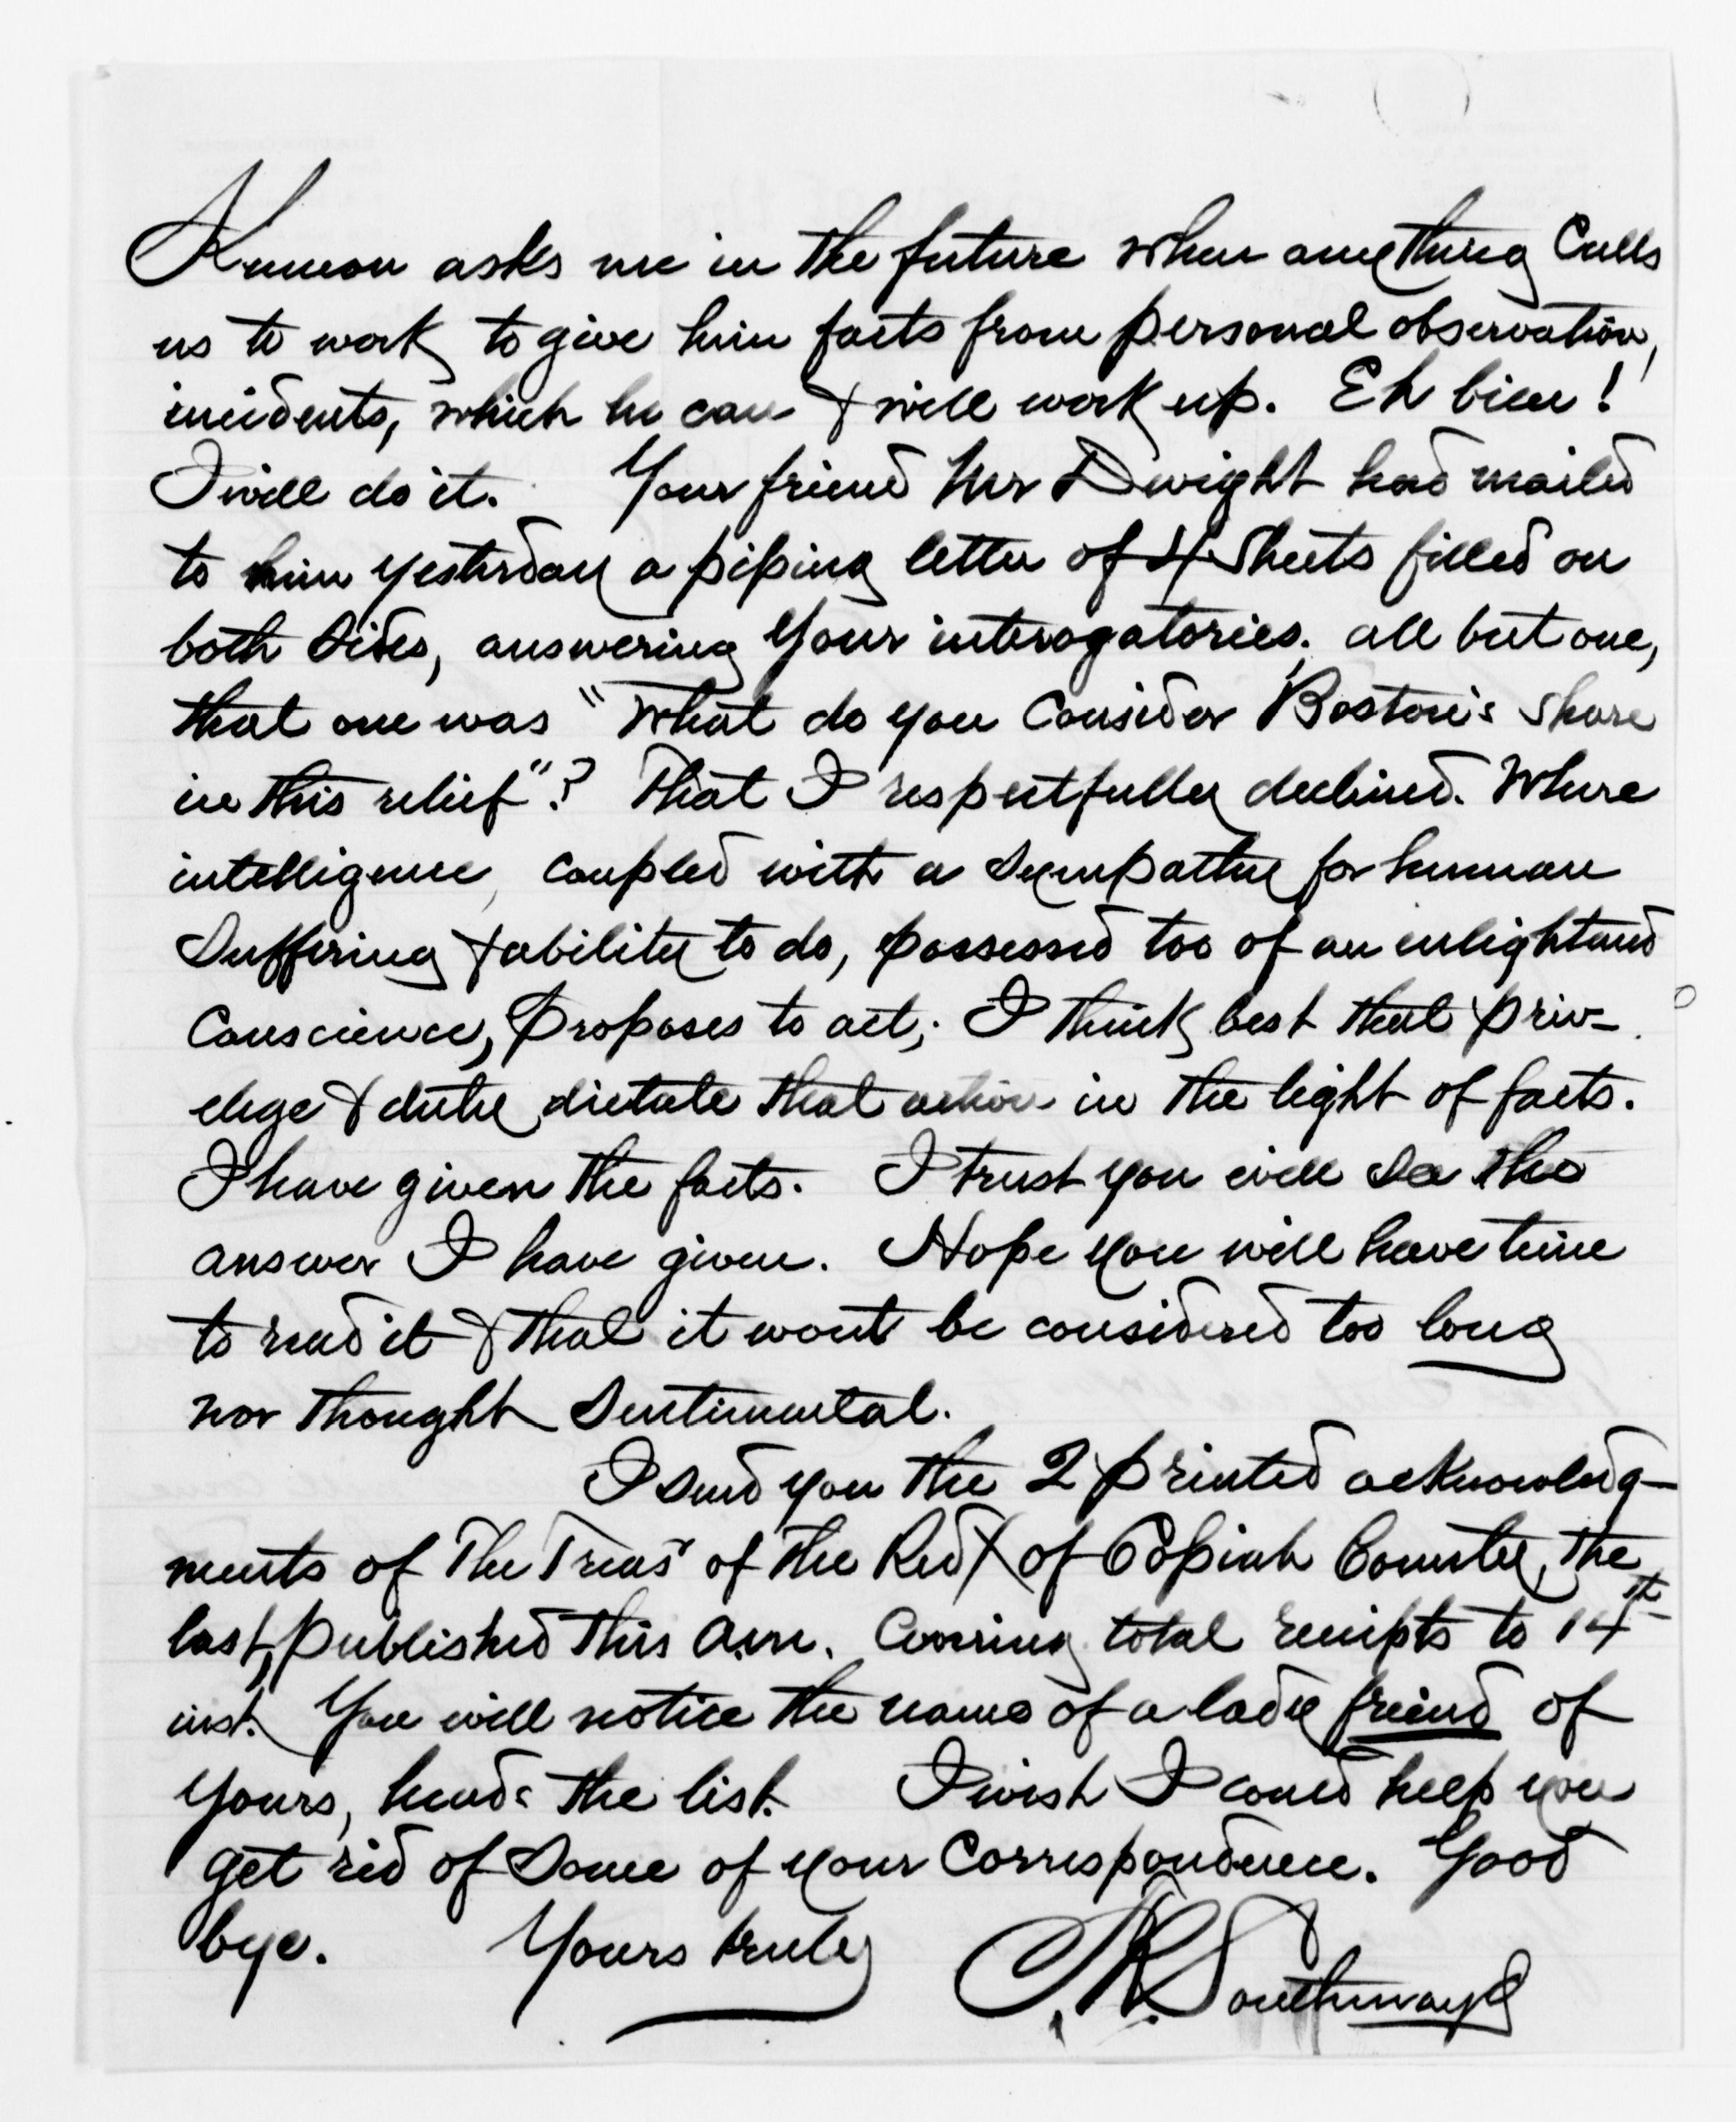 Kennon asks me in the future when anything Calls
us to work to give him facts from personal observation,
incidents, which he can & will work up. Eh bien!
I will do it. Your friend Mr Dwight had mailed
to him yesterday a piping letter of 4 Sheets filled on
both Sides, answering Your interogatories; all but one,
that one was "What do you Consider Boston's Share
in this relief"? That I respectfully declined. Where
intelligence, coupled with a Sympathy for human
Suffering & ability to do, possessed too of an enlightend
Conscience, proposes to act; I think best that priv-
elege & duty dictate that action in the light of facts.
I have given the facts. I trust you will See the
answer I have given. Hope you will have time
to read it & that it wont be considered too long
nor thought Sentimental.
I Send you the 2 printed acknowledg-
ments of The Treas^r of the Red X of Copiah County, the
last, published this a.m. Covering total receipts to 14th
inst. You will notice the name of a lady friend of
Yours, heads the list. I wish I could help you
get rid of Some of your Correspondence. Good
bye. Yours truly Southmayd